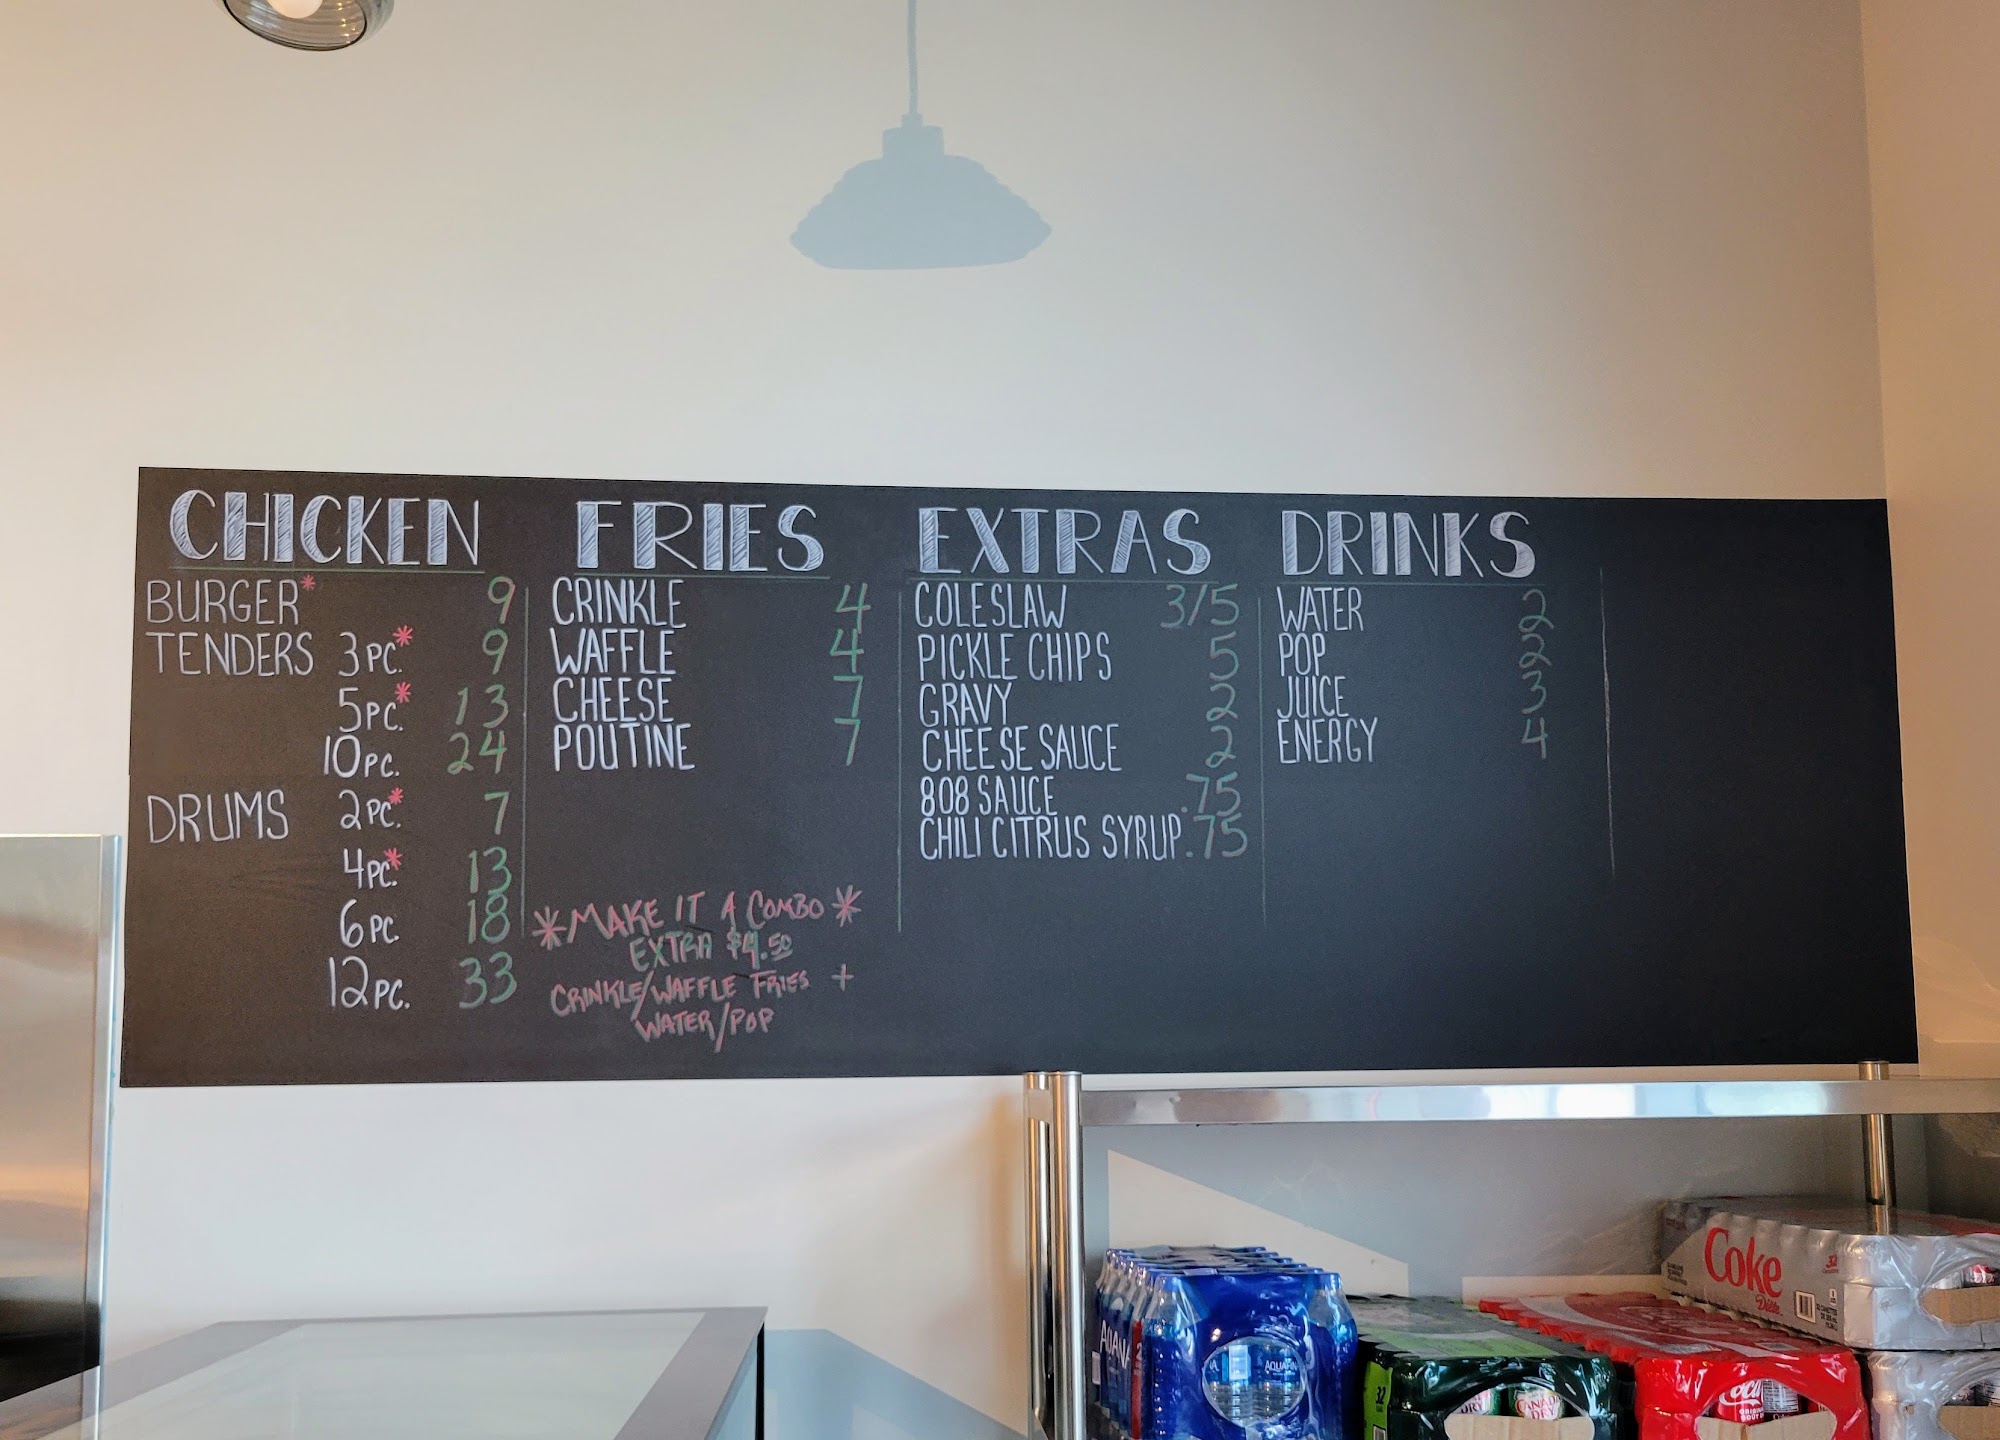 CHICKEN
BURGER* 9
TENDERS 3PC.* 9
5PC.* 13
10PC. 24
DRUMS 2PC.* 7
4PC.* 13
6PC. 18
12PC. 33
FRIES
CRINKLE 4
WAFFLE 4
CHEESE 7
POUTINE 7
*MAKE IT A COMBO*
EXTRA $4.50
CRINKLE/WAFFLE FRIES +
WATER/POP
EXTRAS
COLESLAW 3/5
PICKLE CHIPS 5
GRAVY 2
CHEESE SAUCE 2
808 SAUCE .75
CHILI CITRUS SYRUP .75
DRINKS
WATER 2
POP 2
JUICE 3
ENERGY 4
Coke
Diète
32
AQUAFINA
32
CANADA
DRY